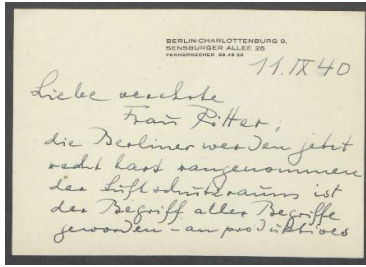 BERLIN-CHARLOTTENBURG 9,
SENSBURGER ALLEE 26
FERNSPRECHER 99 43 29
11. IX 40
Liebe verehrte
Frau Ritter,
die Berliner werden jetzt
recht hart rangenommen
der Luftschutzraum ist
der Begriff aller Begriffe
geworden – an produktives